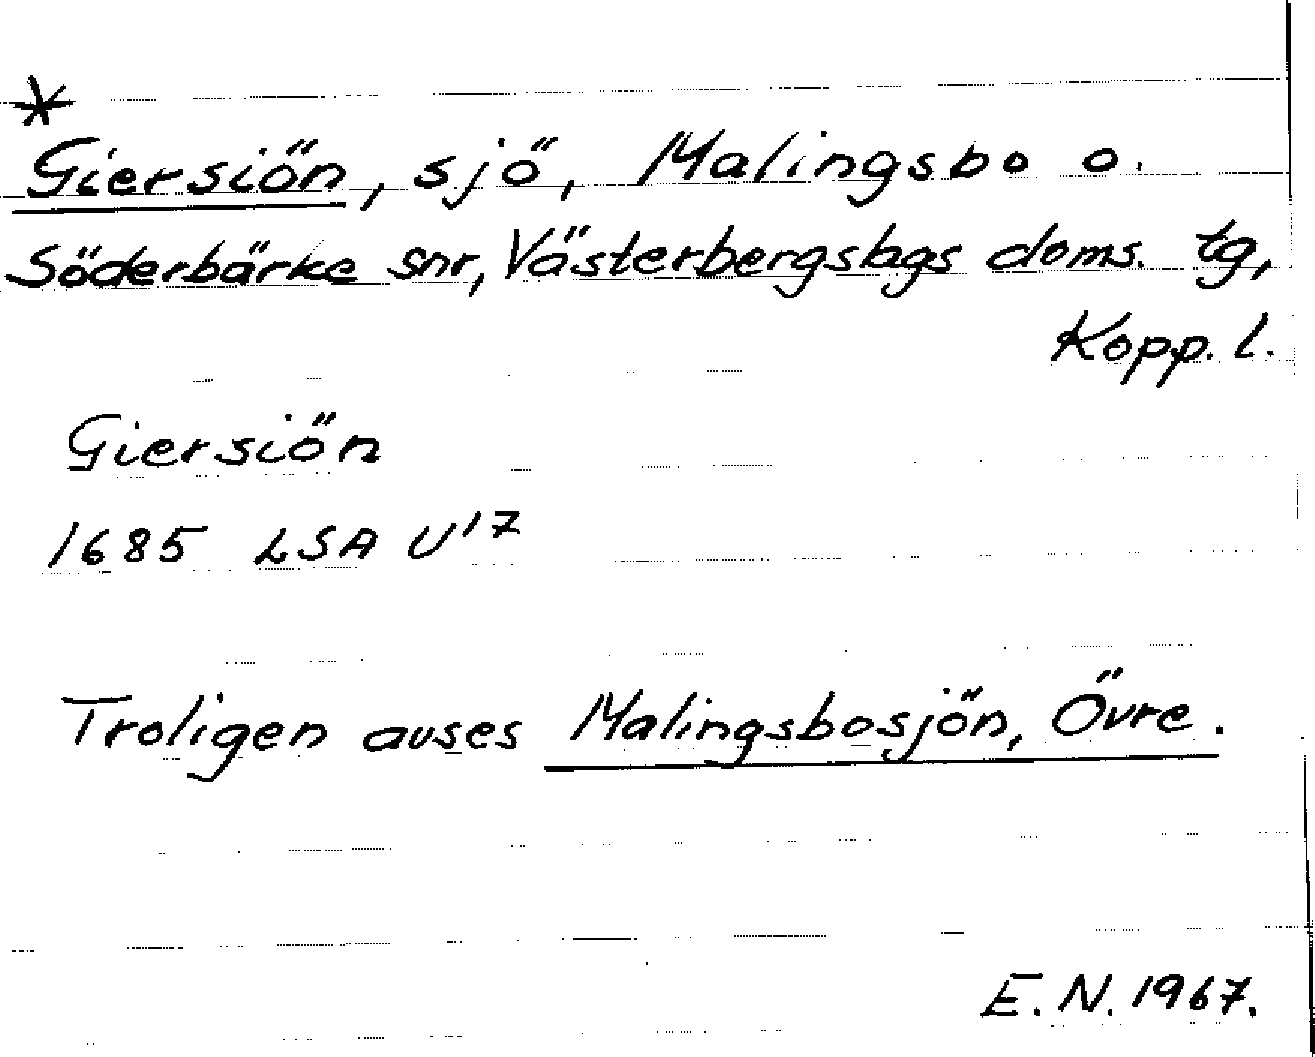 *
Giersiön, sjö, Malingsbo o.
Söderbärke snr, Västerbergslags doms. tg,
Kopp. l.
Giersiön
1685 LSA U¹⁷
Troligen avses Malingsbosjön, Övre.
E. N. 1967.